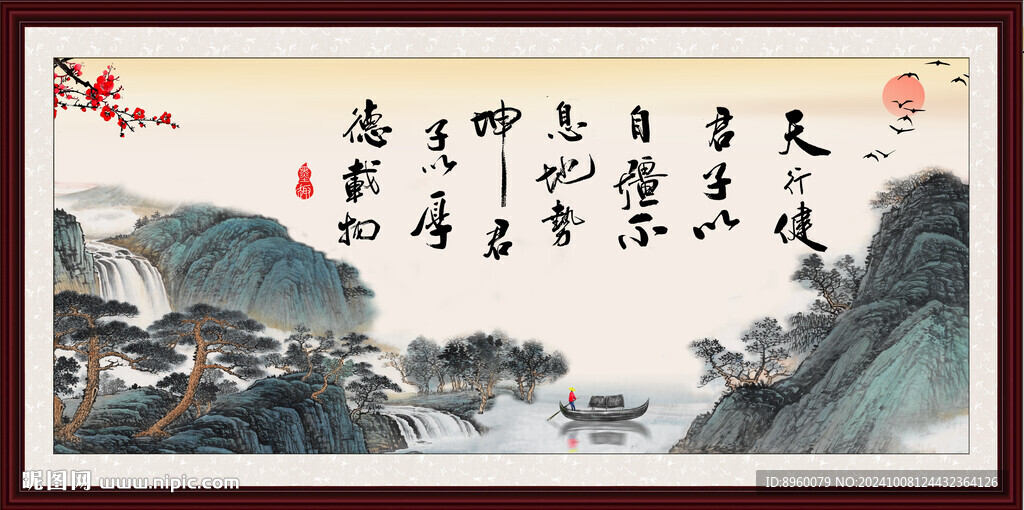 天行健
君子以
自彊不
息地勢
坤君
子以厚
德載物
昵图网 www.nipic.com
ID:8960079 NO:20241008124432364126